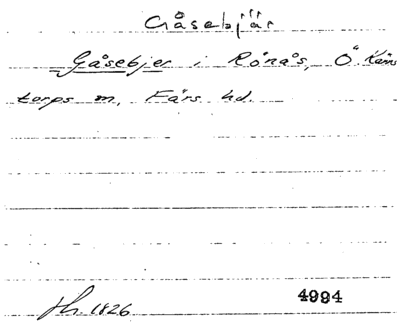 Gåsebjär
Gåsebjer i Rönås, Ö. Kärs
torps m, Färs hd.
Jh. 1826
4994